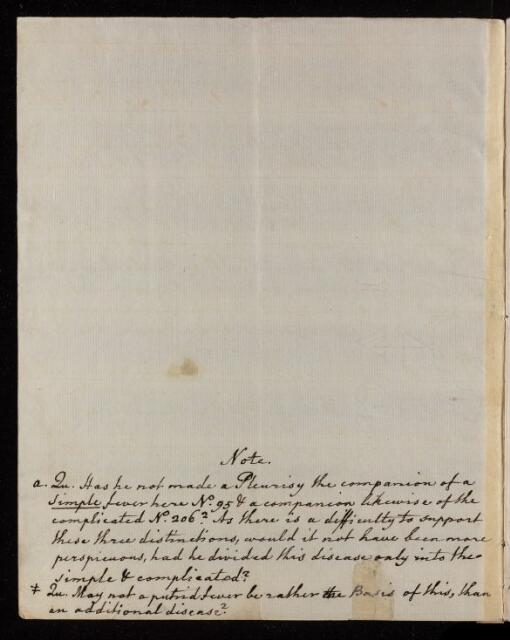 Note.
a. Qu. Has he not made a Pleurisy the companion of a
simple fever here No. 95 & a companion likewise of the
complicated No. 206? As there is a difficulty to support
these three distinctions, would it not have been more
perspicuous, had he divided this disease only into the
simple & complicated?
‡ Qu. May not a putrid fever be rather the Basis of this, than
an additional disease?